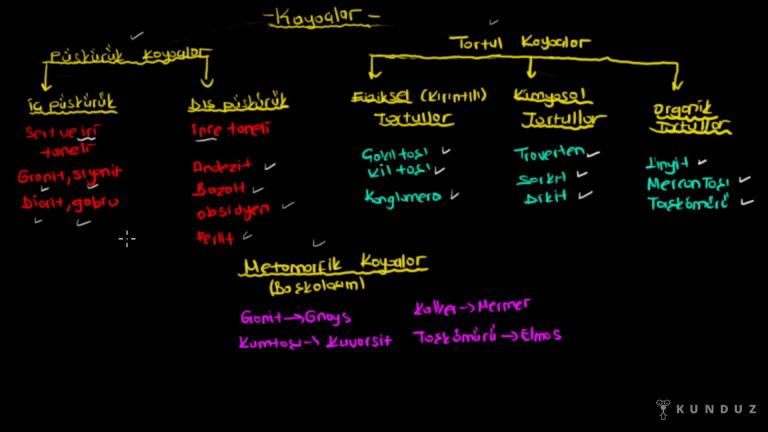 -Kayaçlar-
Püskürük Kayaçlar
Tortul Kayaçlar
İç püskürük
Sert ve iri
taneli
Granit, siyenit
Diorit, gabru
Dış püskürük
İnce taneli
Andezit
Bazalt
obsidyen
Perlit
Fiziksel (Kırıntılı)
Tortullar
Çakıl taşı
Kil taşı
Konglomera
Kimyasal
Tortullar
Traverten
Sarkıt
Dikit
Organik
Tortullar
Linyit
Mercan Taşı
Taşkömürü
Metamorfik Kayaçlar
(Başkalaşım)
Granit→Gnays
Kumtaşı→Kuvarsit
Kalker→Mermer
Taşkömürü→Elmas
KUNDUZ